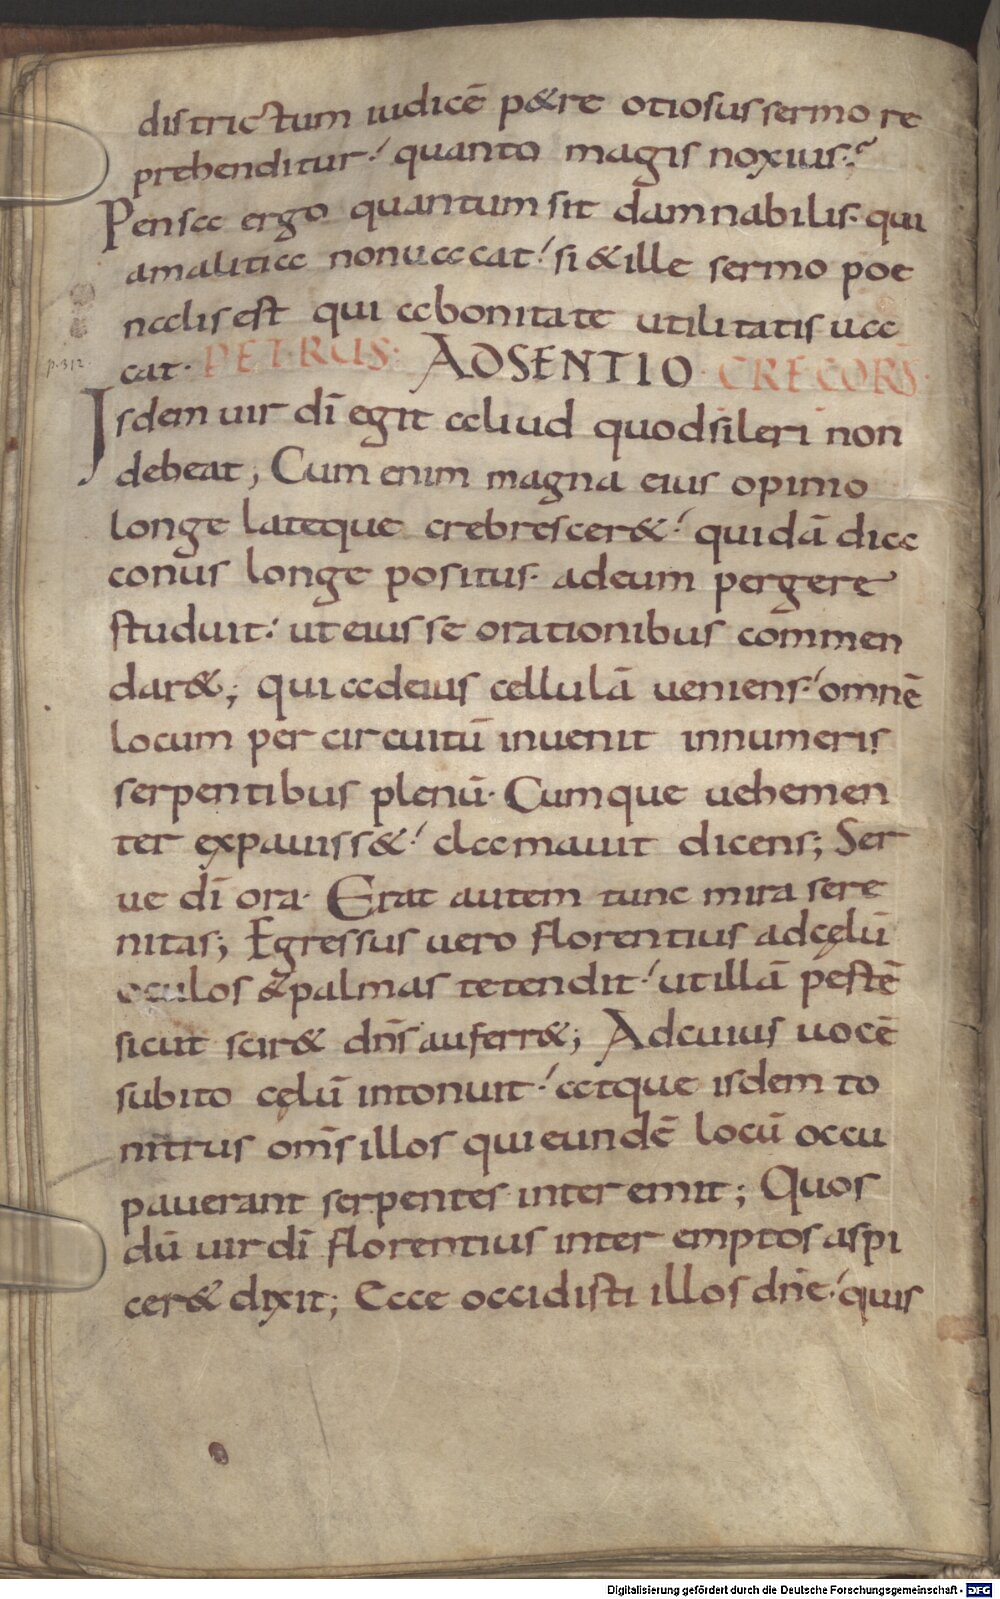 districtum iudicē p&re otiosus sermo re
prehenditur! quanto magis noxius?
Pensa ergo quantum sit damnabilis. qui
a malitia non uacat! si & ille sermo poe
nalis est qui a bonitate utilitatis ua
cat. PETRUS: ADSENTIO. GREGORS.
p. 312
Isdem uir dī egit aliud quod sileri non
debeat; Cum enim magna eius opinio
longe lateque crebrescer&! quidā dia
conus longe positus. ad eum pergere
studuit! ut eius se orationibus commen
dar&; qui ad eius cellulā ueniens! omnē
locum per circuitū inuenit innumeris
serpentibus plenū. Cumque uehemen
ter expauiss&! clamauit dicens; Ser
ue dī ora. Erat autem tunc mira sere
nitas; Egressus uero florentius ad cęlū
oculos & palmas tetendit! ut illā pestē
sicut scir& dn̄s auferr&; Ad cuius uocē
subito cęlū intonuit! atque isdem to
nitrus om̄s illos qui eundē locū occu
pauerant serpentes interemit; Quos
dū uir dī florentius interemptos aspi
cer& dixit; Ecce occidisti illos dn̄e! quis
Digitalisierung gefördert durch die Deutsche Forschungsgemeinschaft - DFG